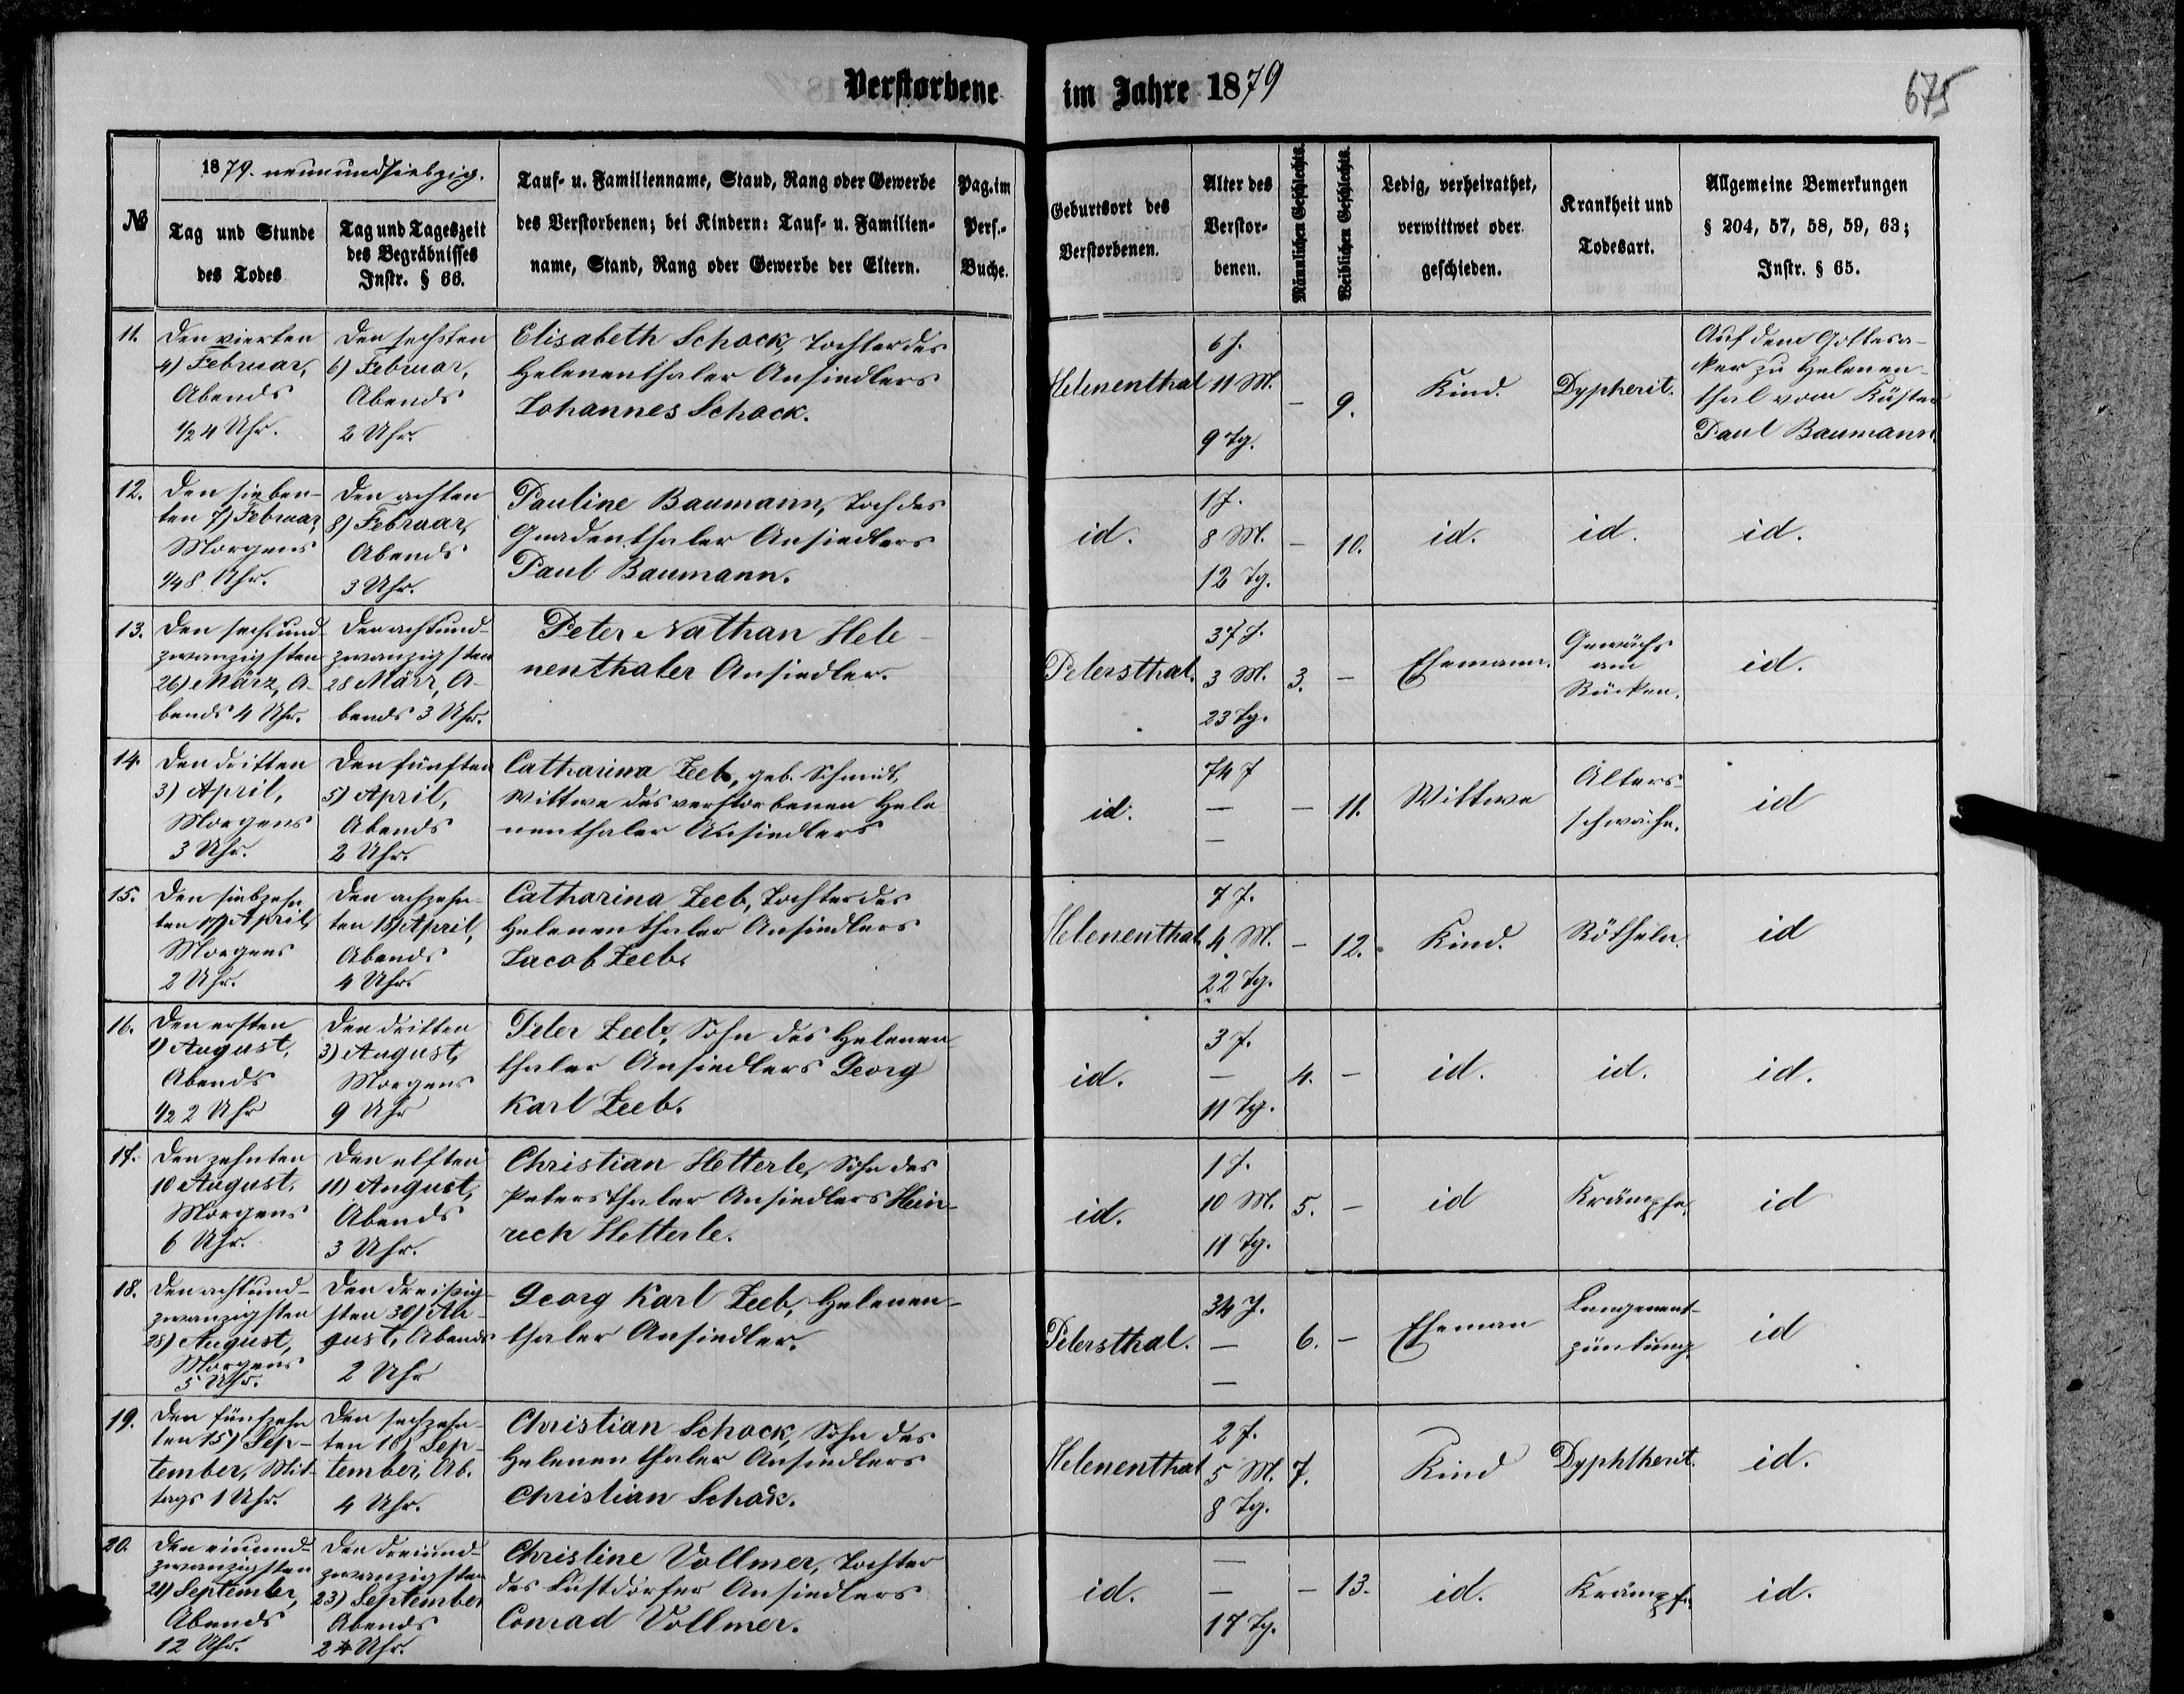 Verstorbene im Jahre 1879
675
№
1879. neunundsiebzig.
Tag und Stunde
des Todes
Tag und Tageszeit
des Begräbnisses
Instr. § 66.
Tauf- u. Familienname, Stand, Rang oder Gewerbe
des Verstorbenen; bei Kindern: Tauf- u. Familien-
name, Stand, Rang oder Gewerbe der Eltern.
Pag. im
Pers.-
Buche.
Geburtsort des
Verstorbenen.
Alter des
Verstor-
benen.
Männlichen Geschlechts.
Weiblichen Geschlechts.
Ledig, verheirathet,
verwittwet oder
geschieden.
Krankheit und
Todesart.
Allgemeine Bemerkungen
§ 204, 57, 58, 59, 63;
Instr. § 65.
11.
Den vierten
4) Februar,
Abends
1/2 4 Uhr.
Den sechsten
6) Februar,
Abends
2 Uhr.
Elisabeth Schock, Tochter des
Helenenthaler Ansiedlers
Johannes Schock.
Helenenthal
6 J.
11 M.
9 Tg.
–
9.
Kind.
Dypherit.
Auf dem Gottesa-
ker zu Helenen-
thal vom Küster
Paul Baumann.
12.
Den sieben-
ten 7) Februar,
Morgens
1/4 8 Uhr.
Den achten
8) Februar,
Abends
3 Uhr.
Pauline Baumann, Toch des
Gnadenthaler Ansiedlers
Paul Baumann.
id.
1 J.
8 M.
12 Tg.
–
10.
id.
id.
id.
13.
Den sechsund-
zwanzigsten
26) März, A-
bends 4 Uhr.
Den achtund-
zwanzigsten
28 März, A-
bends 3 Uhr.
Peter Nathan Hele-
nenthaler Ansiedler.
Petersthal.
37 J.
3 M.
23 Tg.
3.
–
Ehemann.
Gewächs
am
Rücken.
id.
14.
Den dritten
3) April,
Morgens
3 Uhr.
Den fünften
5) April,
Abends
2 Uhr.
Catharina Zeeb, geb. Schmidt,
Wittwe des verstorbenen Hele
nenthaler Ansiedlers
id.
74 J
–
–
–
11.
Wittwe
Alters-
schwäche.
id
15.
Den siebzehn
ten 17) April,
Morgens
2 Uhr.
Den achzehn-
ten 18) April,
Abends
4 Uhr.
Catharina Zeeb, Tochter des
Helenenthaler Ansiedlers
Jacob Zeeb.
Helenenthal.
7 J.
4 M.
22 Tg.
–
12.
Kind.
Rötheln.
id
16.
Den ersten
1) August,
Abends
1/2 2 Uhr
Den dritten
3) August,
Morgens
9 Uhr
Peter Zeeb, Sohn des Helenen
thaler Ansiedlers Georg
Karl Zeeb.
id.
3 J.
–
11 Tg.
4.
–
id.
id.
id.
17.
Den zehnten
10 August,
Morgens
6 Uhr.
Den elften
11) August,
Abends
3 Uhr.
Christian Hetterle, Sohn des
Petersthaler Ansiedlers Hein-
rich Hetterle.
id.
1 J.
10 M.
11 Tg.
5.
–
id
Krämpfe.
id
18.
Den achtund-
zwanzigsten
28) August,
Morgens
5 Uhr.
Den dreißig-
sten 30) Au-
gust, Abends
2 Uhr
Georg Karl Zeeb, Helenen-
thaler Ansiedler.
Petersthal.
34 J.
–
–
6.
–
Eheman
Lungenent-
zündung.
id
19.
Den fünfzehn
ten 15) Sep-
tember, Mit-
tags 1 Uhr.
Den sechzehn-
ten 16) Sep-
tember, Ab.
4 Uhr.
Christian Schock, Sohn des
Helenenthaler Ansiedlers
Christian Schock.
Helenenthal
2 J.
5 M.
8 Tg.
7.
Kind
Dyphtherit.
id.
20.
Den einund-
zwanzigsten
21) September,
Abends
12 Uhr.
Den dreiund-
zwanzigsten
23) September
Abends
2 Uhr.
Christine Vollmer, Tochter
des Lustdorfer Ansiedlers
Conrad Vollmer.
id.
–
–
17 Tg.
–
13.
id.
Krämpfe.
id.